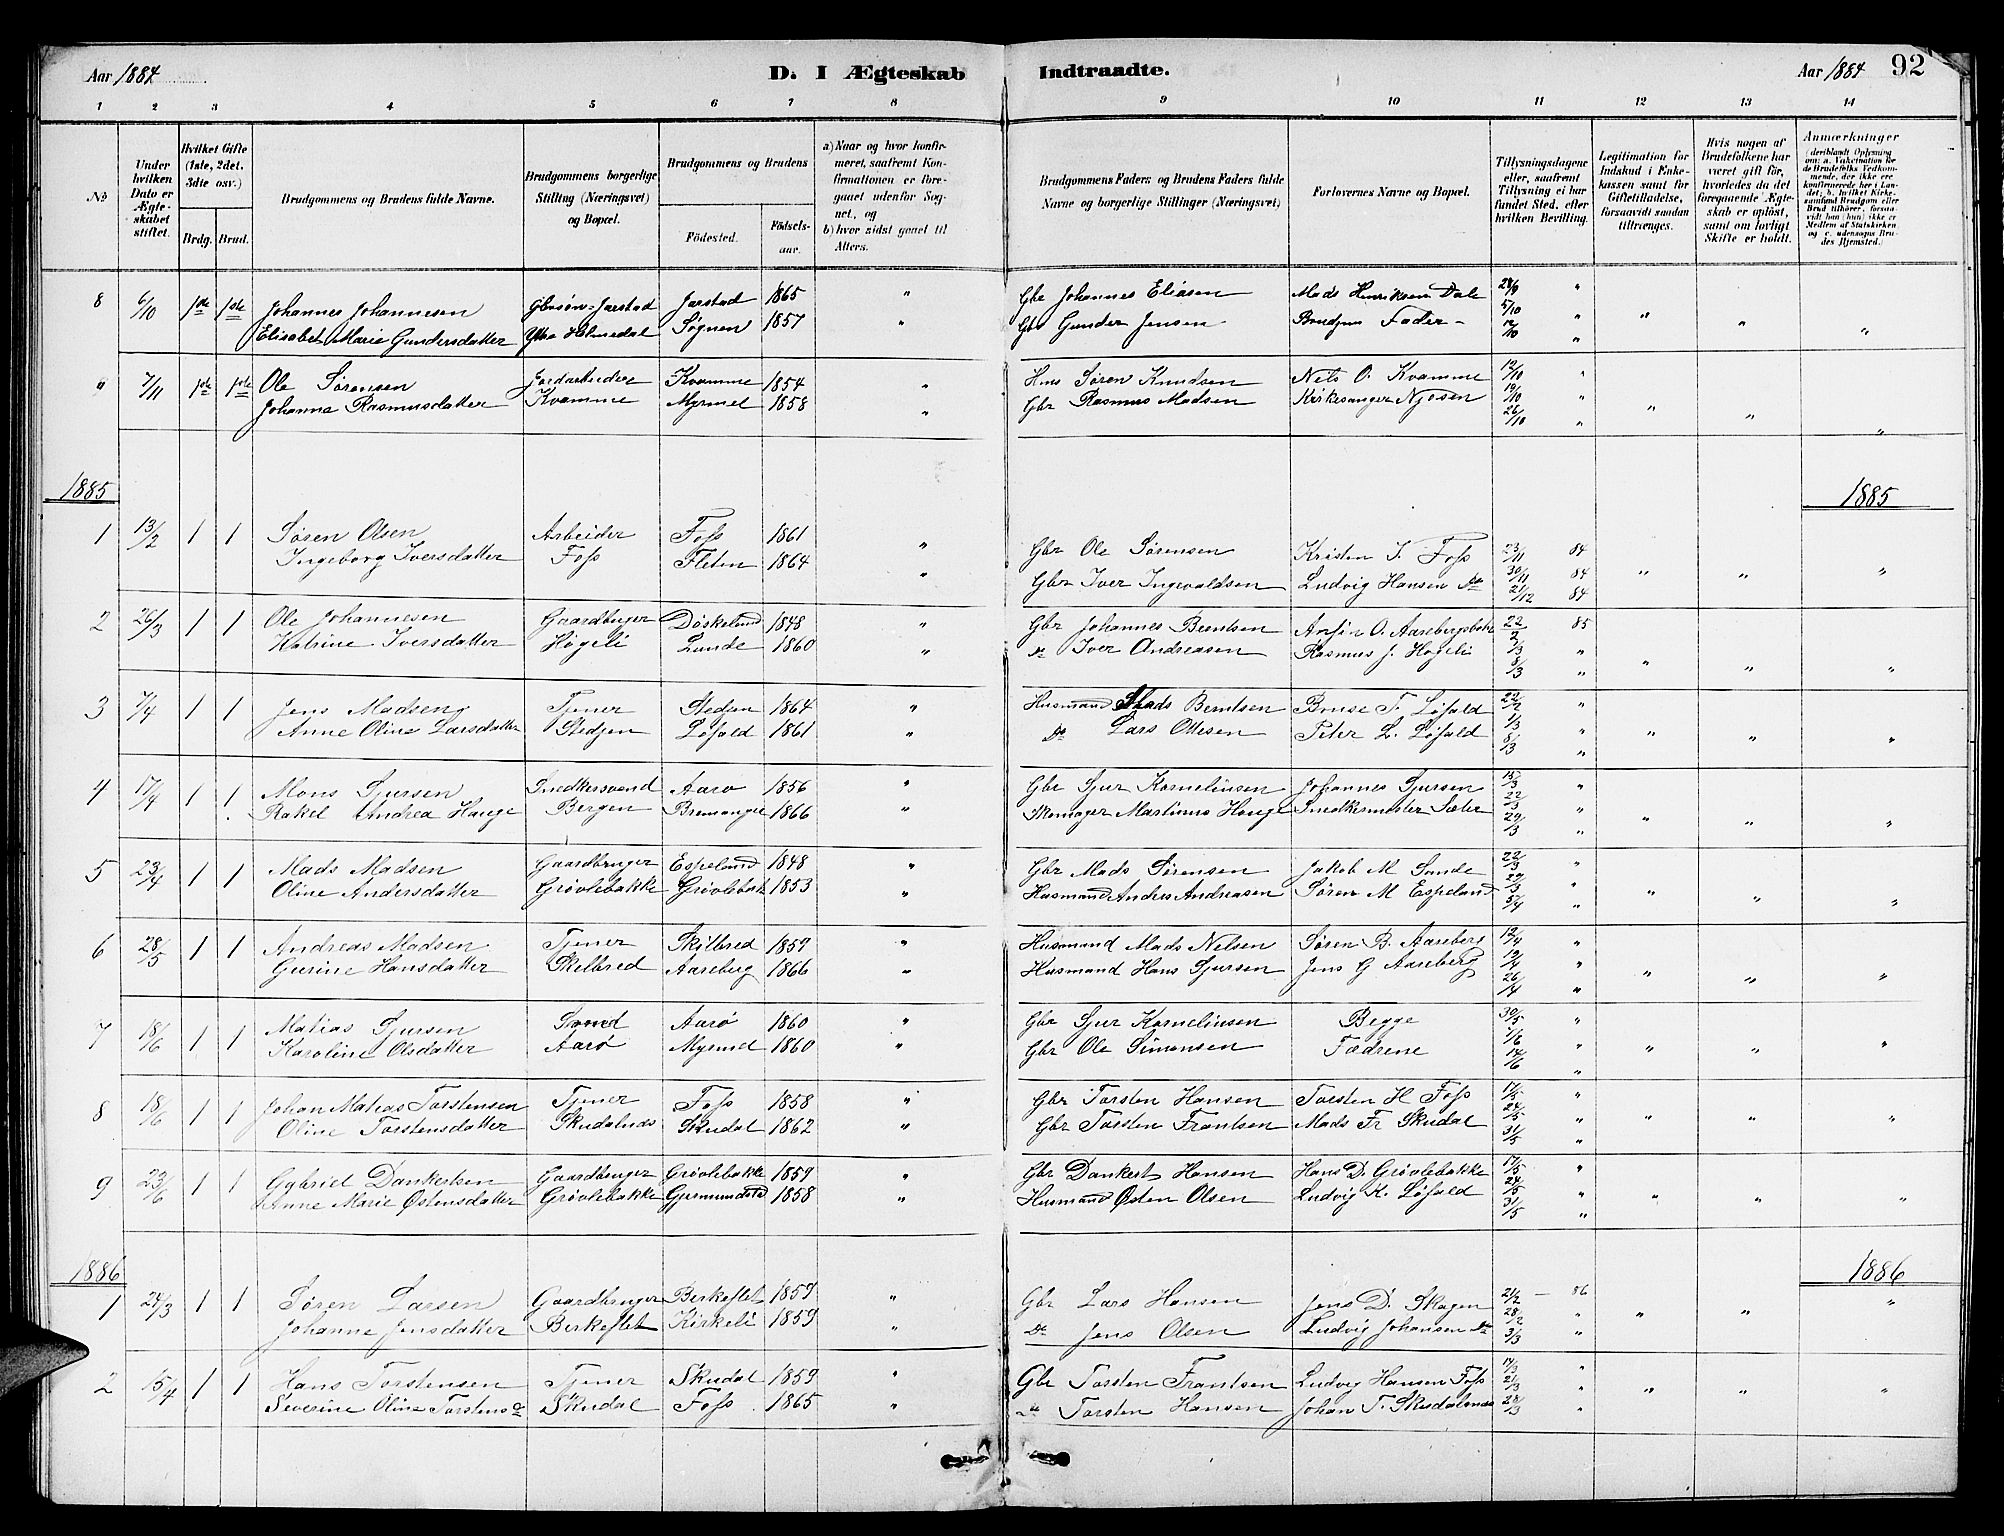 Aar 1884.
D. I Ægteskab Indtraadte.
Aar 1884 92
1 2 3 4 5 6 7 8 9 10 11 12 13 14
№
Under hvilken Dato er Ægteskabet stiftet.
Hvilket Gifte (1ste, 2det. 3die osv.)
Brdg. Brud.
Brudgommens og Brudens fulde Navne.
Brudgommens borgerlige Stilling (Næringsvei) og Bopæl.
Brudgommens og Brudens
Fødested. Fødselsaar.
a) Naar og hvor konfirmeret, saafremt Konfirmationen er foregaaet udenfor Sognet, og
b) hvor sidst gaaet til Alters.
Brudgommens Faders og Brudens Faders fulde Navne og borgerlige Stillinger (Næringsvei)
Forlovernes Navne og Bopæl.
Tillysningsdagene eller, saafremt Tillysning ei har fundet Sted, efter hvilken Bevilling.
Legitimation for Indskud i Enkekassen samt for Giftetilladelse, forsaavidt saadan tiltrænges.
Hvis nogen af Brudefolkene har været gift før, hvorledes da det foregaaende Ægteskab er opløst, samt om lovligt Skifte er holdt.
Anmærkninger (deriblandt Oplysning om: a. Vakcination for de Brudefolks Vedkommende, der ikke ere konfirmerede her i Landet; b. hvilket Kirkesamfund Brudgom eller Brud tilhører, forsaavidt han (hun) ikke er Medlem af Statskirken, og c. udensogns Brudes Hjemsted.)
8 6/10 1ste 1ste Johannes Johannesen Gbrsøn Jarstad Jarstad 1865 " Gbr Johannes Eliasen Mads Henriksen Dale 28/9 "
Elisabet Marie Gundersdatter Helmedal Søgnen 1857 " Gbr Gunder Jensen Brudens Fader 5/10 " " " "
12/10 "
" 7/11 1ste 1ste Ole Sørensen Jordarbeider Kvamme 1854 " Hms Søren Knudsen Nels O. Kvamme 12/10 "
Johanna Rasmusdatter Kvamme Myrmel 1858 " Gbr Rasmus Madsen Kirkesanger Njøsen 19/10 " " " "
26/10 "
1885 1885
1 13/2 1 1 Søren Olsen Arbeider Foss 1861 " Gbr Ole Sørensen Kristen J. Foss 23/11 84
Ingeborg Iversdatter Foss Fleten 1864 " Gbr Iver Ingevaldsen Ludvig Hansen do 30/11 84 " " "
21/12 84
2 26/3 1 1 Ole Johannesen Gaardbruger Døskeland 1848 " Gbr Johannes Berntsen O. Aarebergsbotn 22/2 85
Katrine Iversdatter Høgeli Lunde 1860 " do Iver Andreasen Rasmus J. Høgeli 1/3 " " " "
8/3 "
3 7/4 1 1 Jens Madsen Tjener Stedjen 1864 " Husmand Mads Berntsen T. Løfald 22/2 "
Anne Oline Larsdatter Stedjen Løfald 1861 " do Lars Ottesen Peter L. Løfald 1/3 " " " "
8/3 "
4 17/4 1 1 Mons Sjursen Snedkersvend Aarø 1856 " Gbr Sjur Kornelinsen Johannes Sjursen 15/3 "
Rakel Andrea Hauge Bergen Bremanger 1866 " Skomager Martinus Hauge Snedkermester Sæter 22/3 " " " "
29/3 "
5 23/4 1 1 Mads Madsen Gaardbruger Espeland 1848 " Gbr Mads Sørensen Jakob M Sunde 22/3 "
Oline Andersdatter Grøvlebakke Grøvlebak 1853 " Husmand Anders Andreasen Søren M Espeland 29/3 " " " "
5/4 "
6 28/5 1 1 Andreas Madsen Tjener Skilbred 1859 " Husmand Mads Nelsen Søren B. Aareberg 12/4 "
Gurine Hansdatter Skilbred Aareberg 1866 " Husmand Hans Sjursen Jens G Aareberg 19/4 " " " "
26/4 "
7 18/6 1 1 Matias Sjursen Svend Aarø 1860 " Gbr Sjur Kornelinsen Begge 30/5 "
Karoline Olsdatter Aarø Myrmel 1860 " Gbr Ole Simonsen Fædrene 7/6 " " " "
14/6 "
8 18/6 1 1 Johan Matias Torstensen Tjener Foss 1858 " Gbr Torsten Hansen Torsten H Foss 17/5 "
Oline Torstensdatter Skudalnæs Skudal 1862 " Gbr Torsten Frantsen Mads Fr Skudal 24/5 " " " "
31/5 "
9 23/6 1 1 Gabriel Dankertsen Gaardbruger Grøvlebakke 1859 " Gbr Dankert Hansen Hans D. Grøvlebakke 17/5 "
Anne Marie Østensdatter Grøvlebakke Gjermundstd 1858 " Husmand Østen Olsen Ludvig K. Løfald 24/5 " " " "
31/5 "
1886 1886
1 24/3 1 1 Søren Larsen Gaardbruger Birkeflet 1859 " Gbr Lars Hansen Jens D. Skagen 21/2 – 86 "
Johanne Jensdatter Birkeflet Kirkeli 1859 " do Jens Olsen Ludvig Johansen do 28/2 " " "
3/3
2 15/4 1 1 Hans Torstensen Tjener Skudal 1859 " Gbr Torsten Frantsen Ludvig Hansen Foss 14/3 "
Severine Oline Torstens Skudal Foss 1865 " " Torsten Hansen Johan T. Skudalsnæs 21/3 " " " "
28/3 "